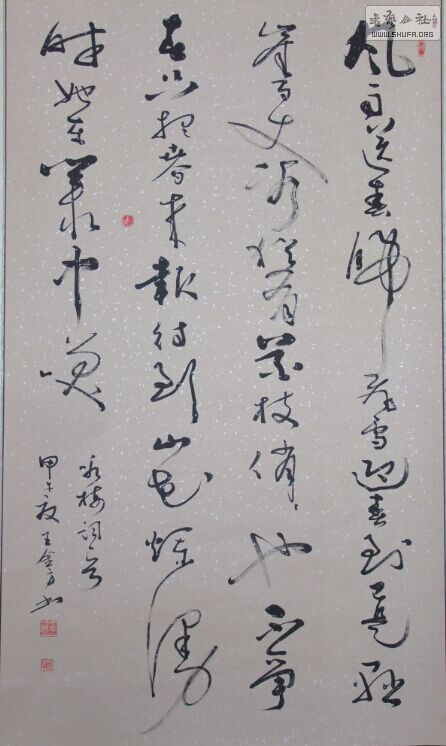 风雨送春归飞雪迎春到已是悬
崖百丈冰犹有花枝俏也不争
春只把春来报待到山花烂漫
时她在丛中笑
咏梅词一首
甲午夏王金方书
書法公社
WWW.SHUFA.ORG